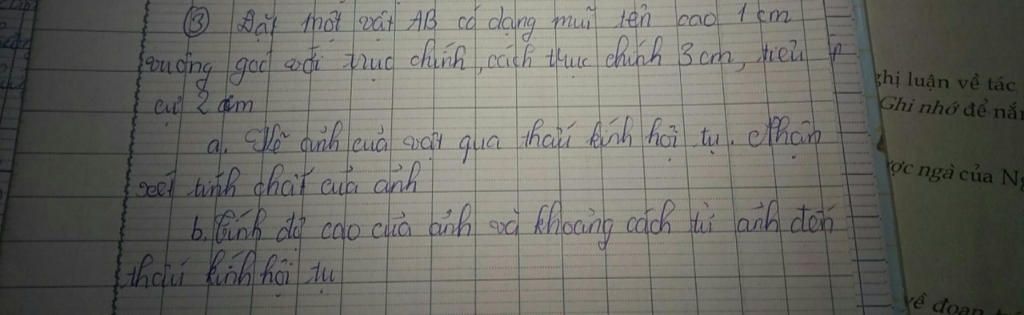 ③ Đặt một vật AB có dạng mũi tên cao 1 cm
vuông góc với trục chính, cách trục chính 3 cm, tiêu
cự 2 cm
a. Vẽ ảnh của vật qua thấu kính hội tụ. Nhận
xét tính chất của ảnh
b. Tính độ cao của ảnh và khoảng cách từ ảnh đến
thấu kính hội tụ
ghị luận về tác
Ghi nhớ để nắ
ợc ngà của Ng
về đoạn